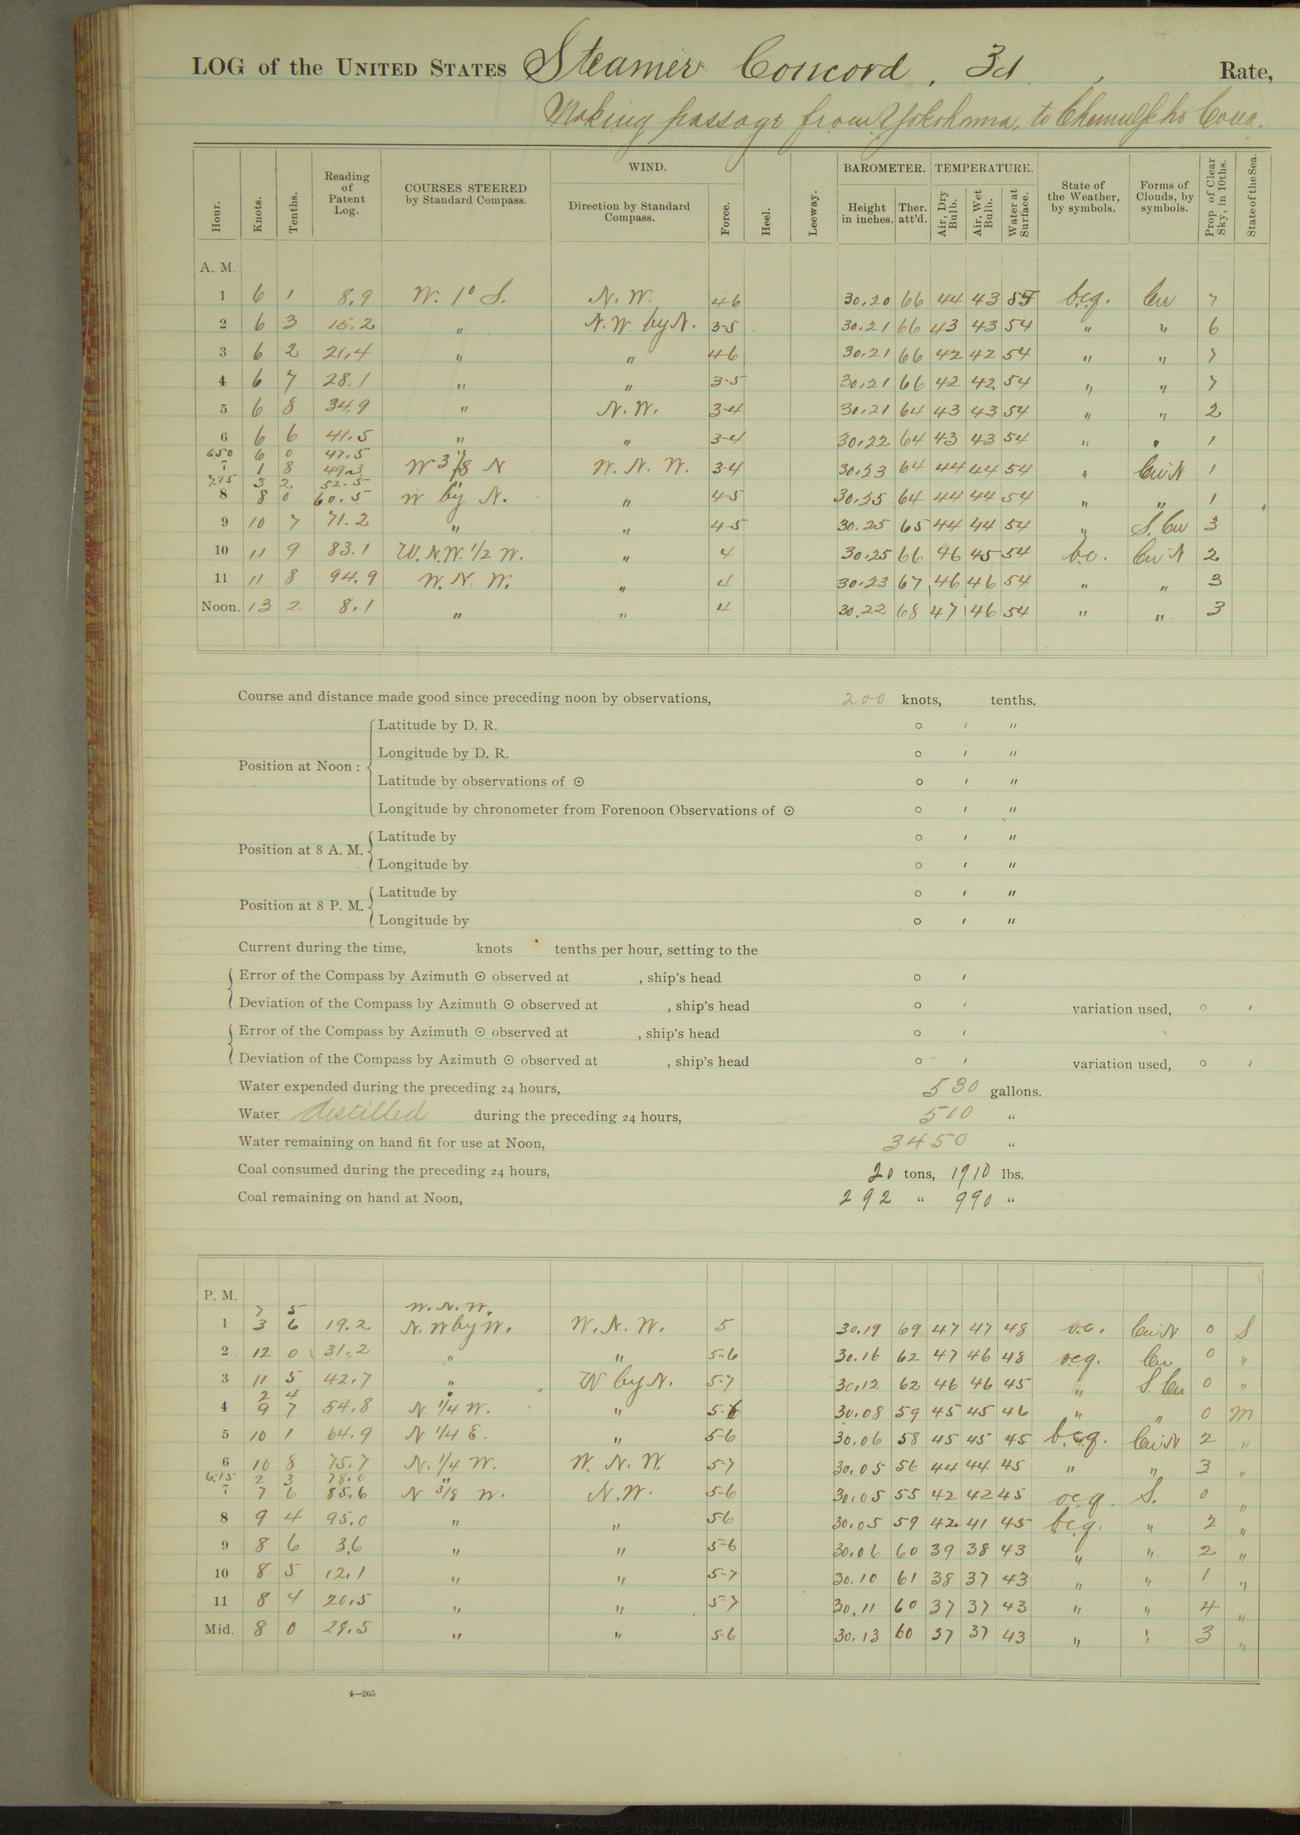 LOG of the UNITED STATES Steamer Concord, 3d, Rate,
Making passage from Yokohama, to Chemulpho Corea.
Hour. Knots. Tenths. Reading of Patent Log. COURSES STEERED by Standard Compass. WIND. Direction by Standard Compass. Force. Heel. Leeway. BAROMETER. Height in inches. Ther. att'd. TEMPERATURE. Air, Dry Bulb. Air, Wet Bulb. Water at Surface. State of the Weather, by symbols. Forms of Clouds, by symbols. Prop. of Clear Sky, in 10ths. State of the Sea.
A. M.
1 6 1 8.9 W. 1° S. N. W. 4-6 30.20 66 44 43 54 b.c.q. Cu 7
2 6 3 15.2 " N. W. by N. 3-5 30.21 66 43 43 54 " " 6
3 6 2 21.4 " " 4-6 30.21 66 42 42 54 " " 7
4 6 7 28.1 " " 3-5 30.21 66 42 42 54 " " 7
5 6 8 34.9 " N. W. 3-4 30.21 64 43 43 54 " " 2
6 6 6 41.5 " " 3-4 30.22 64 43 43 54 " " 1
6.50 6 0 47.5
7 1 8 49.3 W 3/8 N W. N. W. 3-4 30.23 64 44 44 54 " Cu-N 1
7.15 3 2 52.5 "
8 8 0 60.5 W by N. " 4-5 30.25 64 44 44 54 " " 1
9 10 7 71.2 " " 4-5 30.25 65 44 44 54 " S. Cu 3
10 11 9 83.1 W. N. W. 1/2 W. " 4 30.25 66 46 45 54 b.c. Cu-N 2
11 11 8 94.9 W. N. W. " 4 30.23 67 46 46 54 " " 3
Noon. 13 2 8.1 " " 4 30.22 68 47 46 54 " " 3
Course and distance made good since preceding noon by observations, 200 knots, tenths.
Latitude by D. R. ° ′ ″
Longitude by D. R. ° ′ ″
Position at Noon:
Latitude by observations of ☉ ° ′ ″
Longitude by chronometer from Forenoon Observations of ☉ ° ′ ″
Latitude by ° ′ ″
Position at 8 A. M.
Longitude by ° ′ ″
Latitude by ° ′ ″
Position at 8 P. M.
Longitude by ° ′ ″
Current during the time, knots tenths per hour, setting to the
Error of the Compass by Azimuth ☉ observed at , ship's head ° ′
Deviation of the Compass by Azimuth ☉ observed at , ship's head ° ′ variation used, ° ′
Error of the Compass by Azimuth ☉ observed at , ship's head ° ′
Deviation of the Compass by Azimuth ☉ observed at , ship's head ° ′ variation used, ° ′
Water expended during the preceding 24 hours, 530 gallons.
Water distilled during the preceding 24 hours, 510 "
Water remaining on hand fit for use at Noon, 3450 "
Coal consumed during the preceding 24 hours, 20 tons, 1910 lbs.
Coal remaining on hand at Noon, 292 " 990 "
P. M.
7 5 W. N. W.
1 3 6 19.2 N. W by W. W. N. W. 5 30.19 69 47 47 48 o.c. Cu-N 0 S
2 12 0 31.2 " " 5-6 30.16 62 47 46 48 ocq. Cu 0 "
3 11 5 42.7 " W by N. 5-7 30.12 62 46 46 45 " S. Cu 0 "
2 4 "
4 9 7 54.8 N. 1/4 W. " 5-6 30.08 59 45 45 46 " " 0 M
5 10 1 64.9 N 1/4 E. " 5-6 30.06 58 45 45 45 b.c.q. Cu-N 2 "
6 10 8 75.7 N. 1/4 W. W. N. W. 5-7 30.05 56 44 44 45 " " 3 "
6.15 2 3 78.0 "
7 7 6 85.6 N 3/8 W. N. W. 5-6 30.05 55 42 42 45 ocq. S. 0 "
8 9 4 95.0 " " 5-6 30.05 59 42 41 45 bcq. " 2 "
9 8 6 3.6 " " 5-6 30.06 60 39 38 43 " " 2 "
10 8 5 12.1 " " 5-7 30.10 61 38 37 43 " " 1 "
11 8 4 20.5 " " 5-7 30.11 60 37 37 43 " " 4 "
Mid. 8 0 28.5 " " 5-6 30.13 60 37 37 43 " " 3 "
4—265